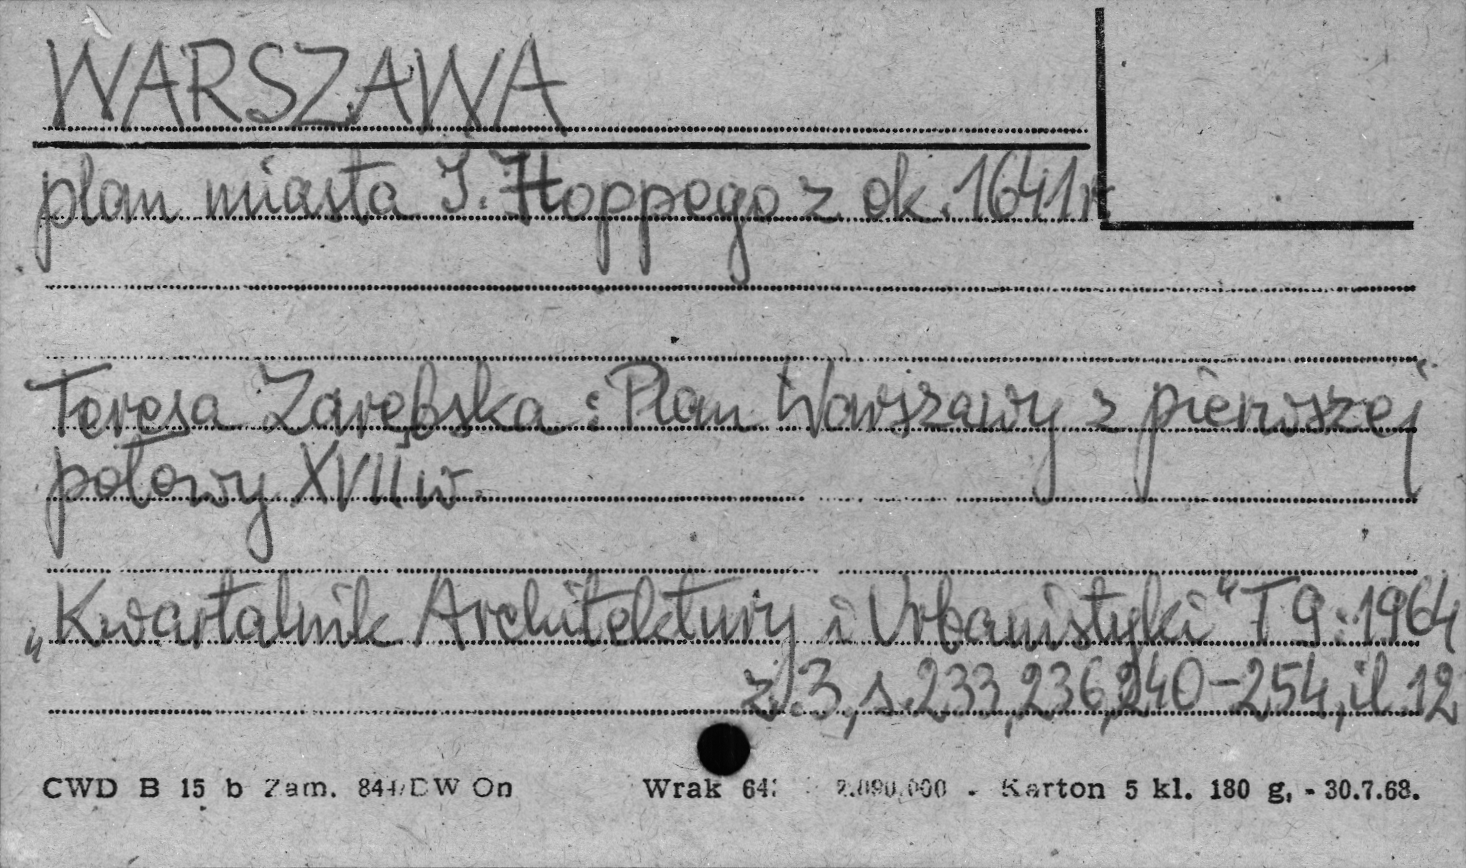 WARSZAWA
plan miasta I. Hoppego z ok. 1641 r
Teresa Zarębska : Plan Warszawy z pierwszej
połowy XVII w.
„Kwartalnik Architektury i Urbanistyki" T 9 : 1964
z. 3, s. 233, 236, 240-254, il. 12
CWD B 15 b Zam. DW On Wrak - Karton 5 kl. 180 g, - 30.7.68.